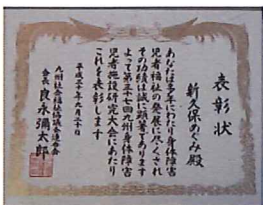 表彰状
新久保めぐみ殿
あなたは多年にわたり身体障害
児者福祉の発展に尽くされ
その功績は誠に顕著であります
よって第三十七回九州身体障害
児者施設研究大会にあたり
これを表彰します
平成三十年六月二十日
九州社会福祉協議会連合会
会長 良永彌太郎